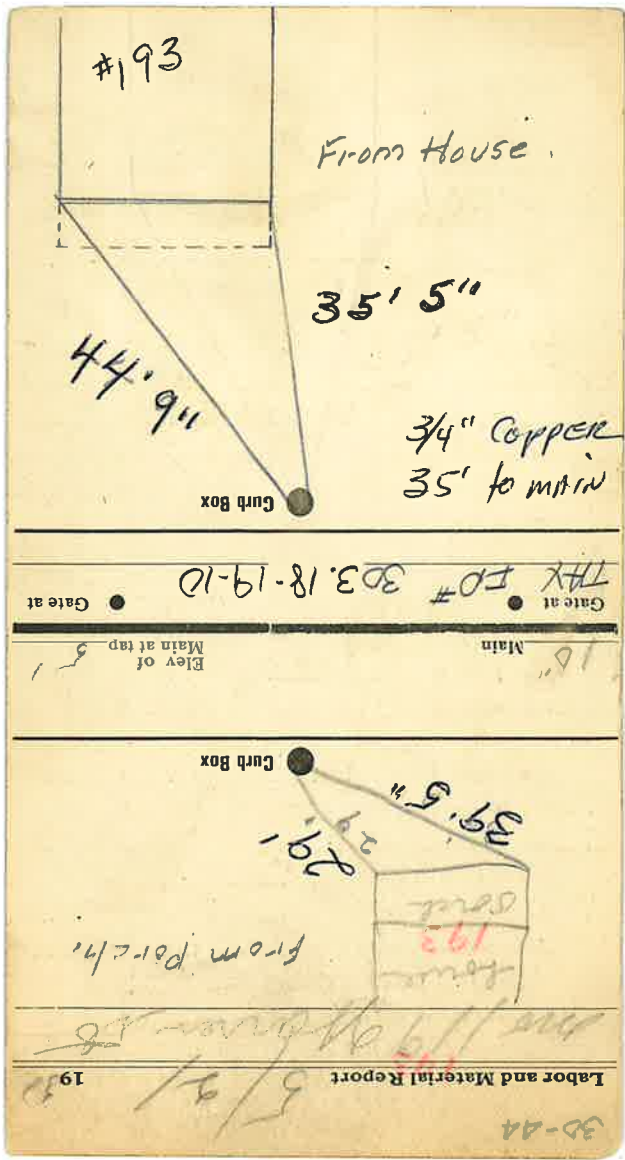 #193
From House.
35' 5"
44' 9"
3/4" Copper
35' to main
Curb Box
TAX ID# 303.18-19-10
Gate at Gate at
Main Elev of
Main at tap
10" 5'
Curb Box
39' 5"
29'
29'
From Porch.
193
house
Labor and Material Report 19
5/21
30-44